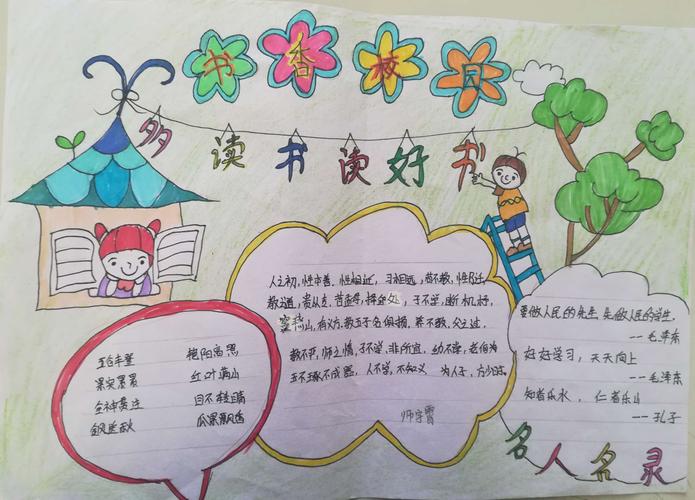 书香校园
多读书读好书
人之初，性本善，性相近，习相远，苟不教，性乃迁，
教之道，贵以专，昔孟母，择邻处，子不学，断机杼，
窦燕山，有义方，教五子名俱扬，养不教，父之过，
教不严，师之惰，子不学，非所宜，幼不学，老何为
玉不琢不成器，人不学，不知义 为人子，方少时。
师宇霄
五谷丰登 艳阳高照
果实累累 红叶满山
全神贯注 目不转睛
瓜果飘香
要做人民的先生 先做人民的学生。
--毛泽东
好好学习，天天向上
--毛泽东
知者乐水，仁者乐山
--孔子
名人名录